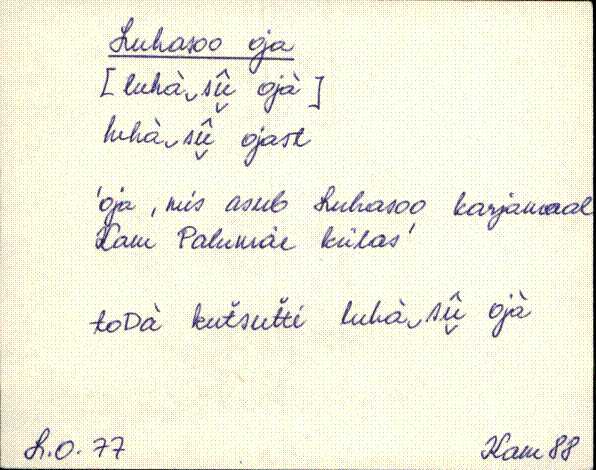 Luhasoo oja
[luhà sū̬̂ ojà]
luhà sū̬̂ ojast
'oja, mis asub Luhasoo karjamaal
Kam Palumäe külas'
toDà kutšutti luhà sū̬̂ ojà
L.O. 77
Kam 88